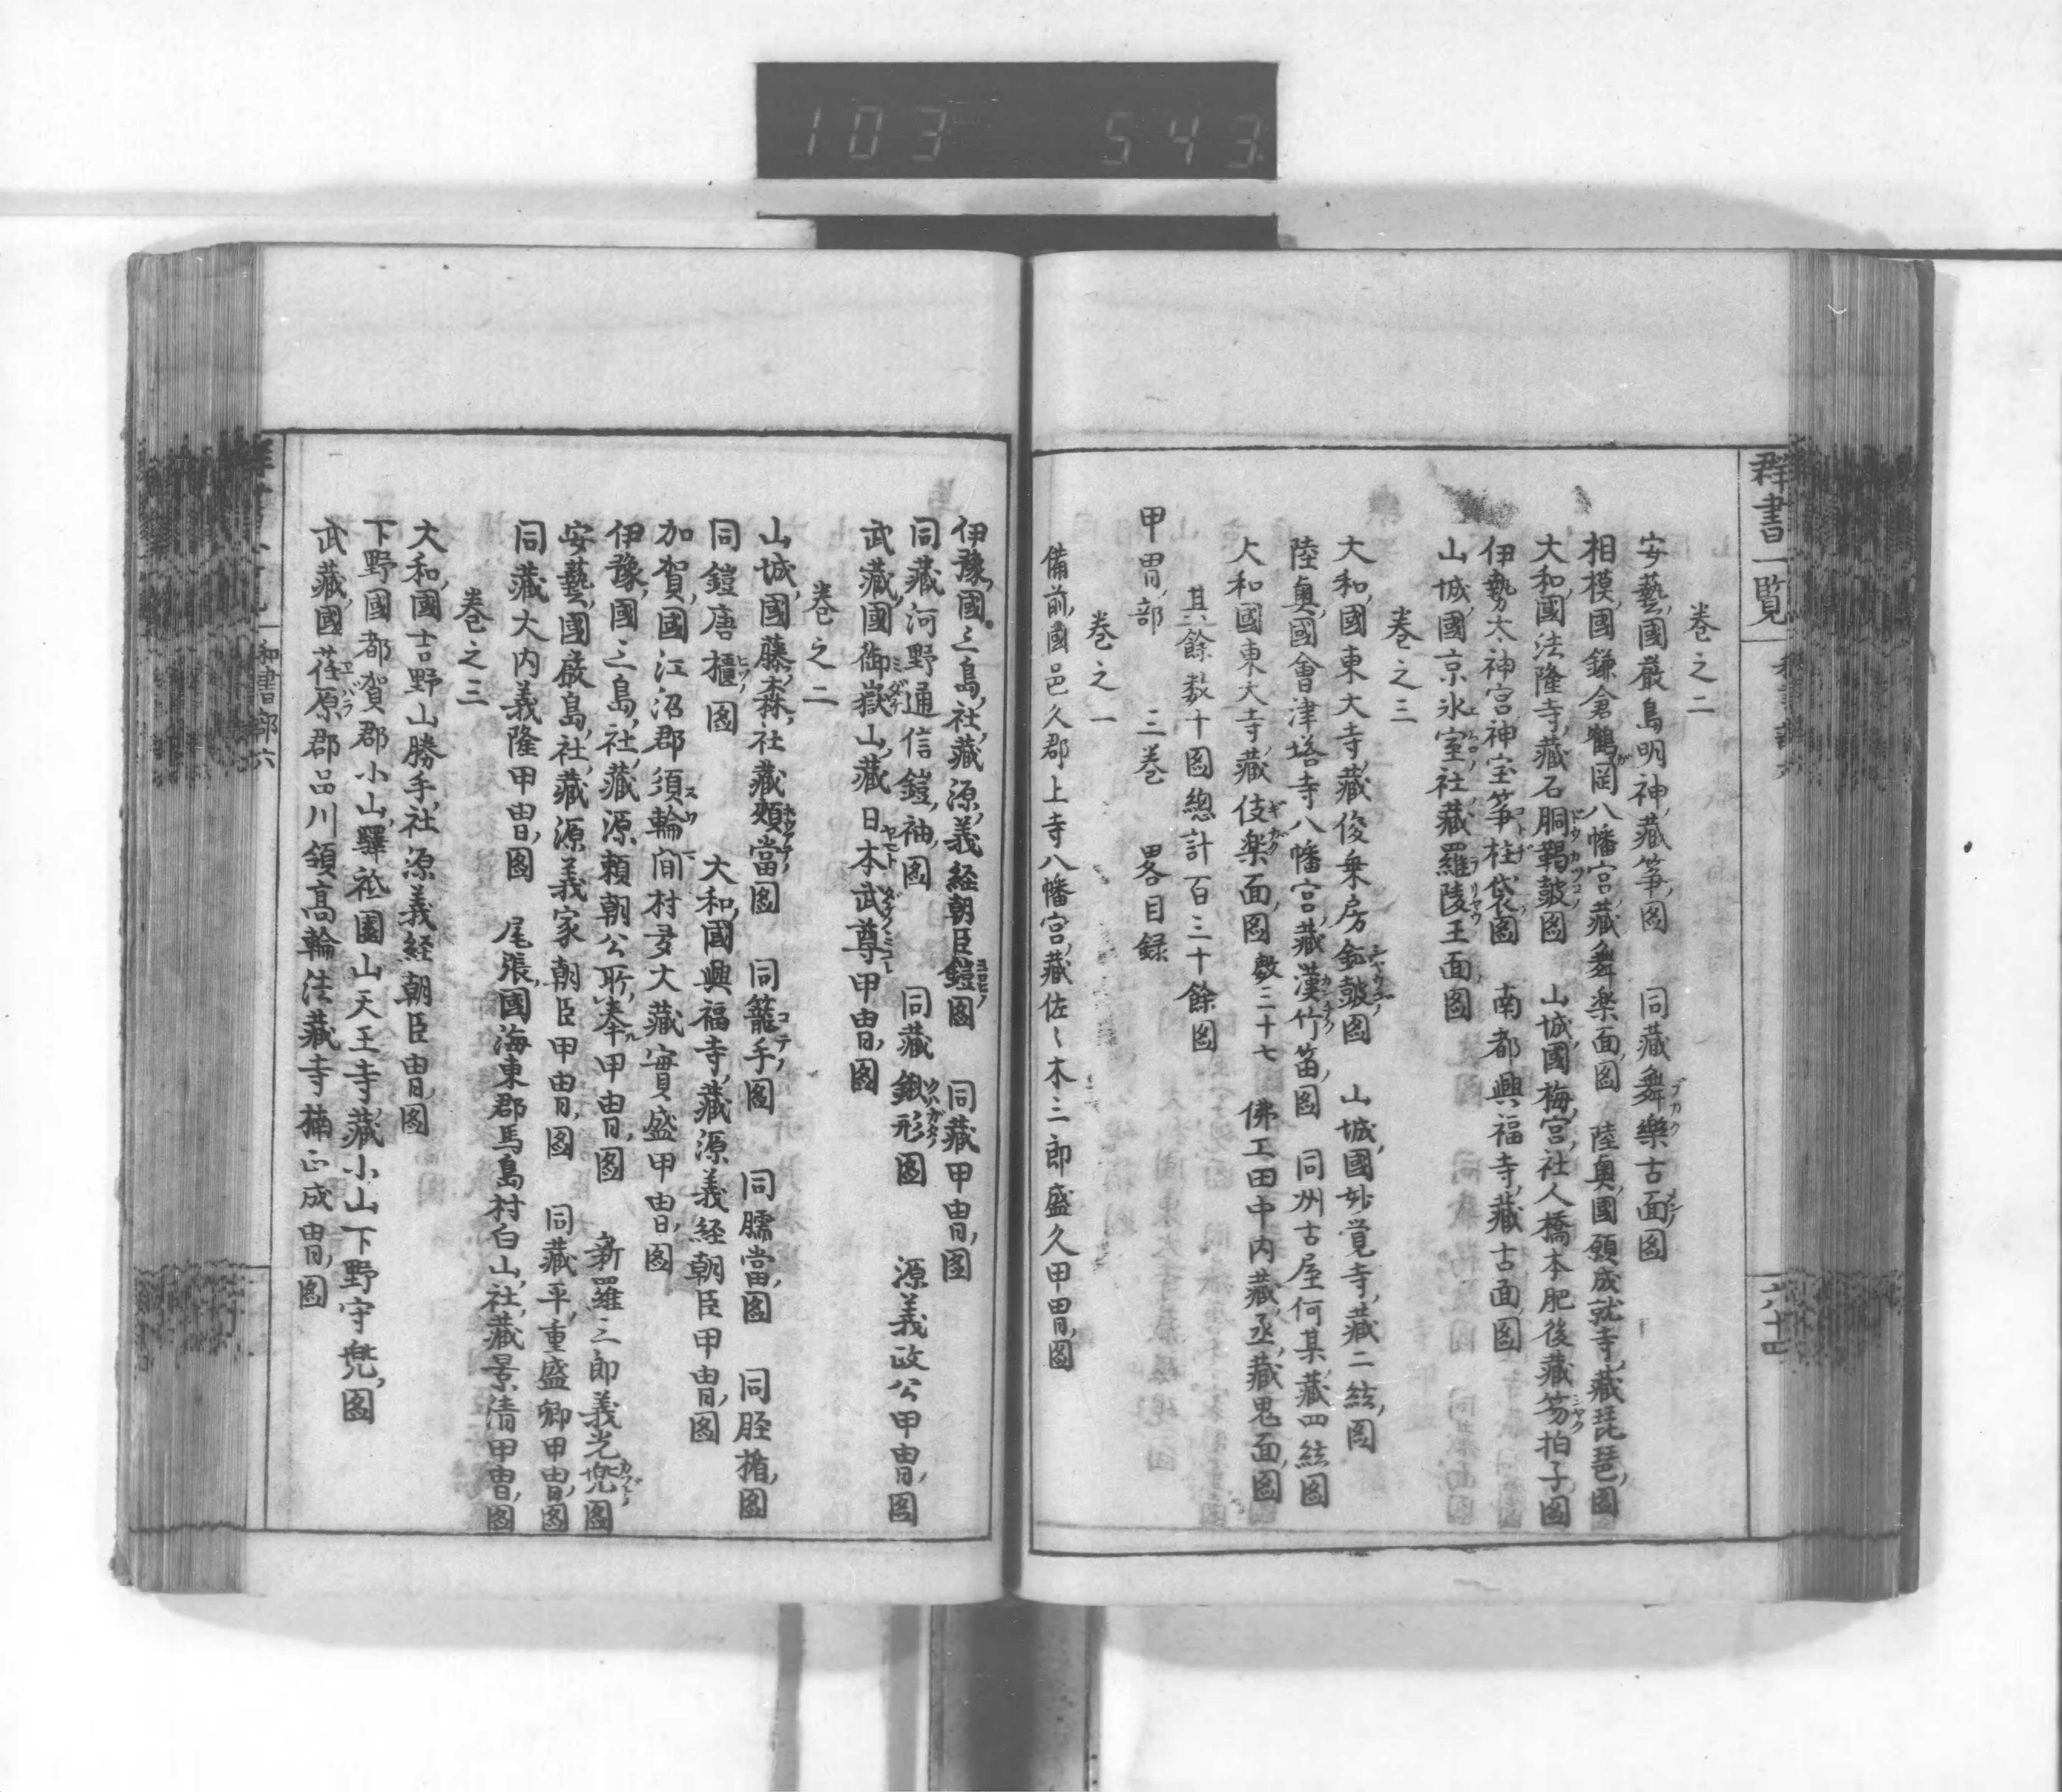 103 543
群書一覧
六十四
卷之二
安藝國嚴島明神藏箏圖　同藏舞樂古面圖
相模國鎌倉鶴岡八幡宮藏舞楽面圖　陸奥國領成就寺藏琵琶圖
大和國法隆寺藏石胴鞨皷圖　山城國梅宮社人橋本肥後藏笏拍子圖
伊勢太神宮神宝箏柱袋圖　南都興福寺藏古面圖
山城國京氷室社藏羅陵王面圖
卷之三
大和國東大寺藏俊乗房鉦皷圖　山城國妙覚寺藏二絃圖
陸奥國會津塔寺八幡宮藏漢竹笛圖　同州古屋何某藏四絃圖
大和國東大寺藏伎楽面圖數三十七　佛工田中内藏丞藏鬼面圖
其餘数十圖總計百三十餘圖
甲冑部　三巻　畧目録
卷之一
備前國邑久郡上寺八幡宮藏佐々木三郎盛久甲冑圖
伊豫國三島社藏源義経朝臣鎧圖　同藏甲冑圖
同藏河野通信鎧袖圖　同藏鍬形圖　源義政公甲冑圖
武藏國御嶽山藏日本武尊甲冑圖
卷之二
山城國藤森社藏頰當圖　同籠手圖　同臑當圖　同脛楯圖
同鎧唐櫃圖　大和國興福寺藏源義経朝臣甲冑圖
加賀國江沼郡須輪間村多大藏實盛甲冑圖
伊豫國三島社藏源頼朝公所奉甲冑圖　新羅三郎義光兜圖
安藝國嚴島社藏源義家朝臣甲冑圖　同藏平重盛卿甲冑圖
同藏大内義隆甲冑圖　尾張國海東郡馬島村白山社藏景清甲冑圖
卷之三
大和國吉野山勝手社源義経朝臣冑圖
下野國都賀郡小山驛祗園山天王寺藏小山下野守兜圖
武藏國荏原郡品川領高輪法藏寺楠正成冑圖
和書部六